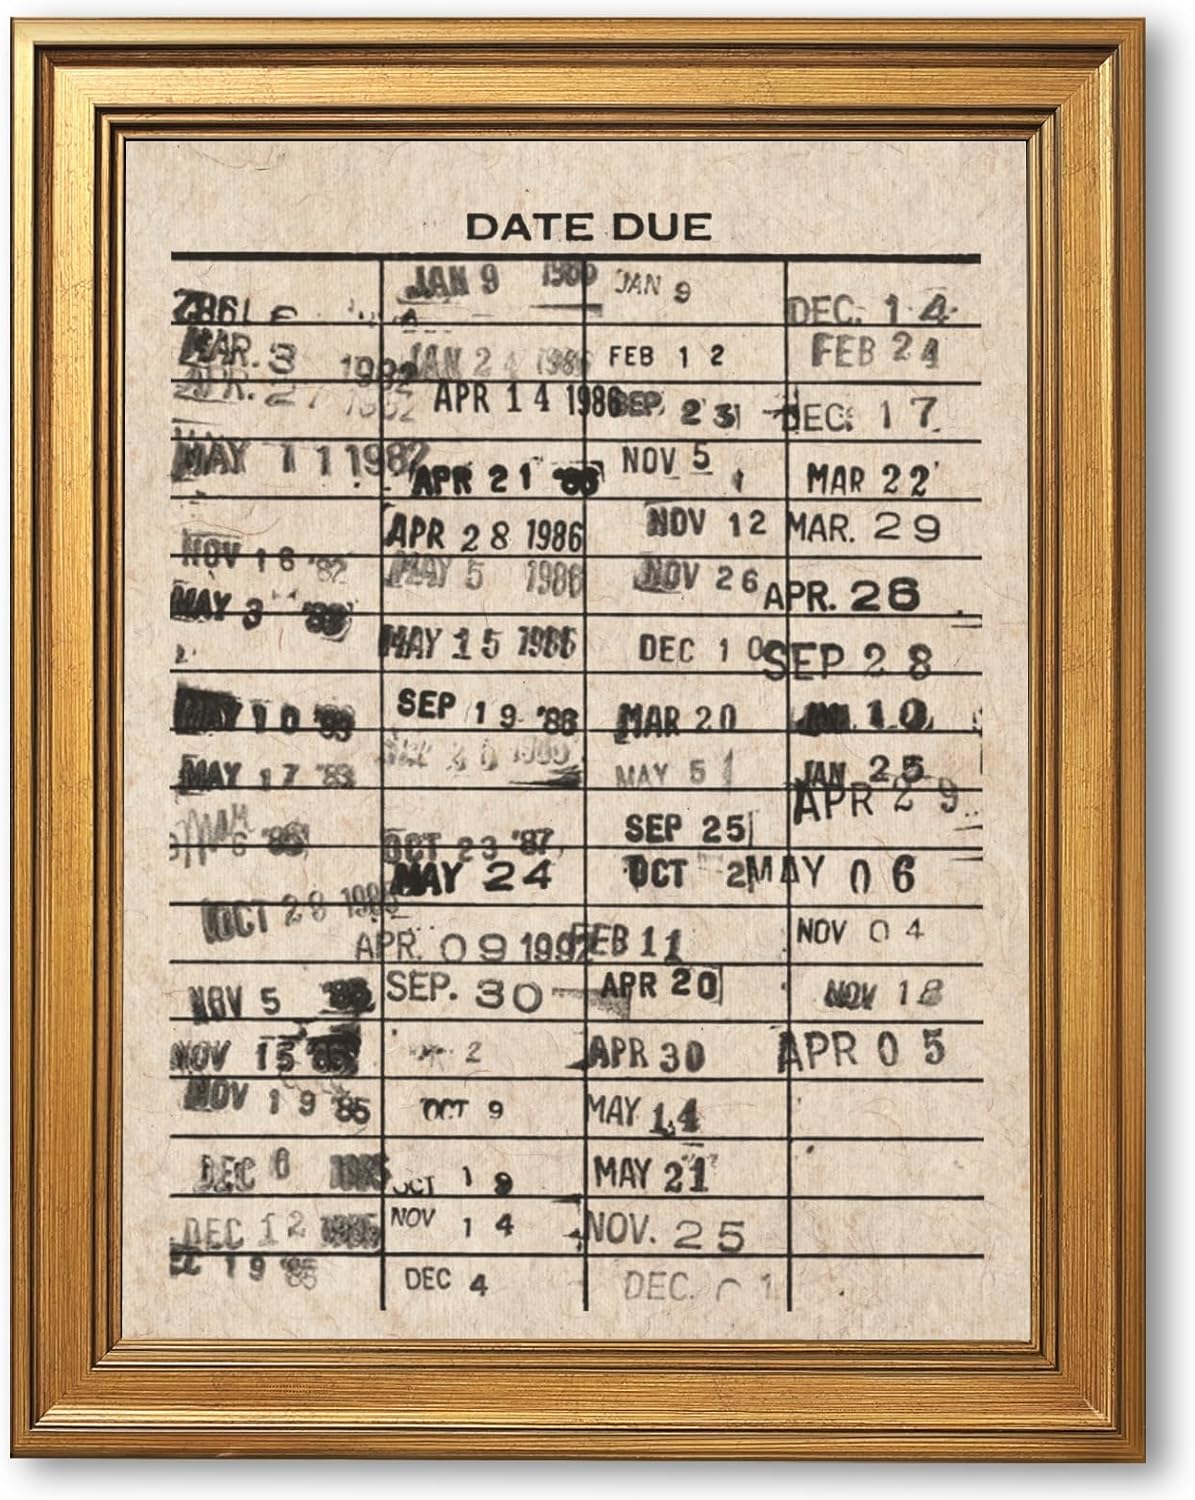 DATE DUE
MAR. 3 1982
MAY 11 1982
NOV 16 '82
MAY 3
MAY 10 '83
MAY 17 '83
OCT 28
NOV 5
NOV 15
NOV 19 '85
DEC 6 1985
DEC 12 1985
19 '85
JAN 9 1986
JAN 2 1986
APR 14 1986
APR 21 '86
APR 28 1986
MAY 5 1986
MAY 15 1986
SEP 19 '86
OCT 23 '87
MAY 24
APR. 09 1992
SEP. 30
2
OCT 9
OCT 19
NOV 14
DEC 4
JAN 9
FEB 12
SEP. 23
NOV 5
NOV 12
NOV 26
DEC 10
MAR 20
MAY 5
SEP 25
OCT 2
FEB 11
APR 20
APR 30
MAY 14
MAY 21
NOV. 25
DEC. 01
DEC. 14
FEB 24
DEC. 17
MAR 22
MAR. 29
APR. 26
SEP 28
JAN. 10
JAN 25
APR 29
MAY 06
NOV 04
NOV 18
APR 05